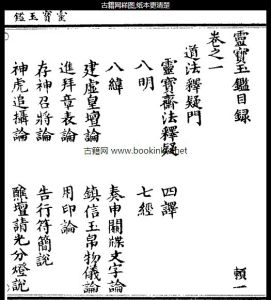 古籍网样图,纸本更清楚
靈寶玉鑑
靈寶玉鑑目録 賴一
卷之一
道法釋疑門
靈寶齋法釋疑 四譯
八明 七經
八緯 奏申關牒文字論
建虛皇壇論 鎮信玉帛物儀論
進拜章表論 用印論
存神召將論 告行符簡說
神虎追攝論 醮壇請光分燈說
古籍网 www.bookinlife.net